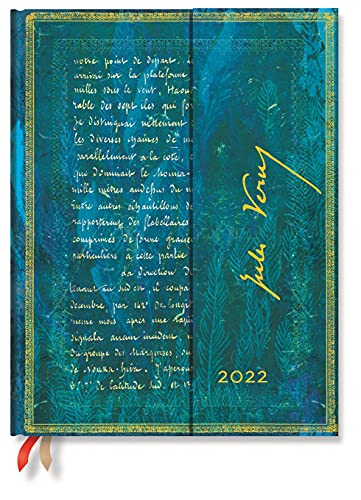 notre point de départ. Le
arrivai sur la plateforme
milles sous le vent, Haoua
rable des sept iles qui for
de distinguai nettement
les diverses chaines de m
parallelement à la côte, e
que dominait le Mouna-
mille mètres audessus du ni
Entre autres échantillons de
rapportèrent des flabellaires
comprimés de forme gracie
particuliers à cette partie
La direction du
courut au sud est, il coupa
décembre, par 142° de longit
meme mois, après une rapi
signala aurun incident,
du groupe des Marquises,
de Nouka-hiva. J'aperçu
8°57' de latitude Sud, et 13
Jules Verne
2022